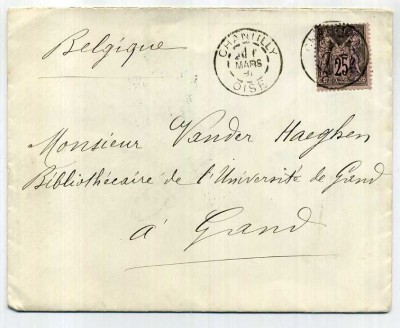 Belgique
CHANTILLY
MARS
OISE
25
Monsieur Vander Haeghen
Bibliothécaire de l'Université de Gand
à Gand